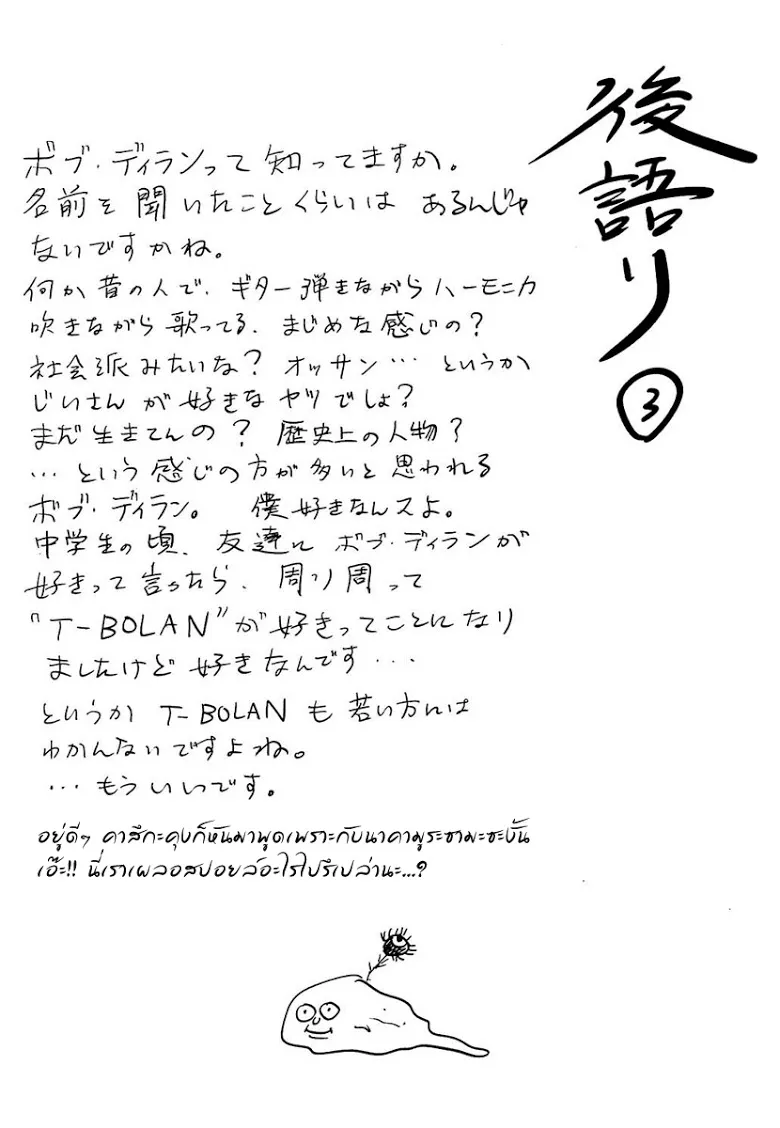 後語り
③
ボブ・ディランって知ってますか。
名前を聞いたことくらいは あるんじゃ
ないですかね。
何か昔の人で、ギター弾きながらハーモニカ
吹きながら歌ってる、まじめな感じの?
社会派みたいな? オッサン… というか
じいさんが好きなヤツでしょ?
まだ生きてんの? 歴史上の人物?
…という感じの方が多いと思われる
ボブ・ディラン。 僕好きなんスよ。
中学生の頃、友達に ボブ・ディランが
好きって言ったら、周り周って
"T-BOLAN"が好きってことになり
ましたけど好きなんです…
というか T-BOLANも若い方には
わかんないですよね。
…もういいです。
อยู่ดีๆ คาสึกะคุงก็หันมาพูดเพราะกับนาคามูระซามะซะงั้น
เอ๊ะ!! นี่เราเผลอสปอยล์อะไรไปรึเปล่านะ...?